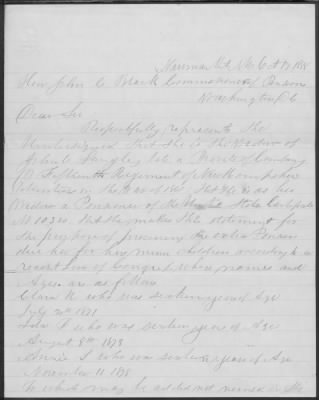 Newmarket, N.H. Oct 13 188
Hon John C Black Commissioner of Pension
Washington D.C
Dear Sir
Respectfully represents the
Undersigned that She is the Widow of
Langley late a Private of Company
D Fifteenth Regiment of New Hampshire
Volunteers in the War of that She is as his
Widow a Pensioner of the United State Certificate
that she makes this statement for
the purpose of procuring the Pension
due her for her minor children according to a
recent law of Congress whose names and
Ages are as follows
Clara N who was sixteen years of Age
July 20th 1871
Ida F who was sixteen years of Age
August 8th 1873
Annie S who was sixteen years of Age
November 11 1878
To which may be added not named in the